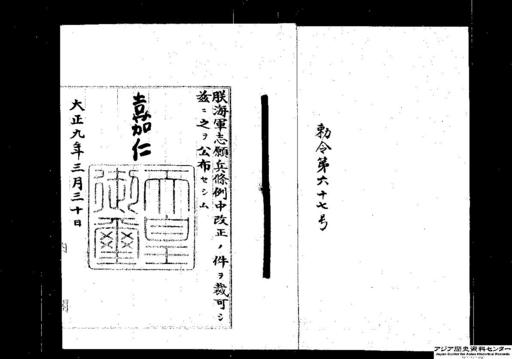 勅令第六十七号
朕海軍志願兵條例中改正ノ件ヲ裁可シ
茲ニ之ヲ公布セシム
嘉仁
天皇御璽
大正九年三月三十日
内閣
アジア歴史資料センター
Japan Center for Asian Historical Records